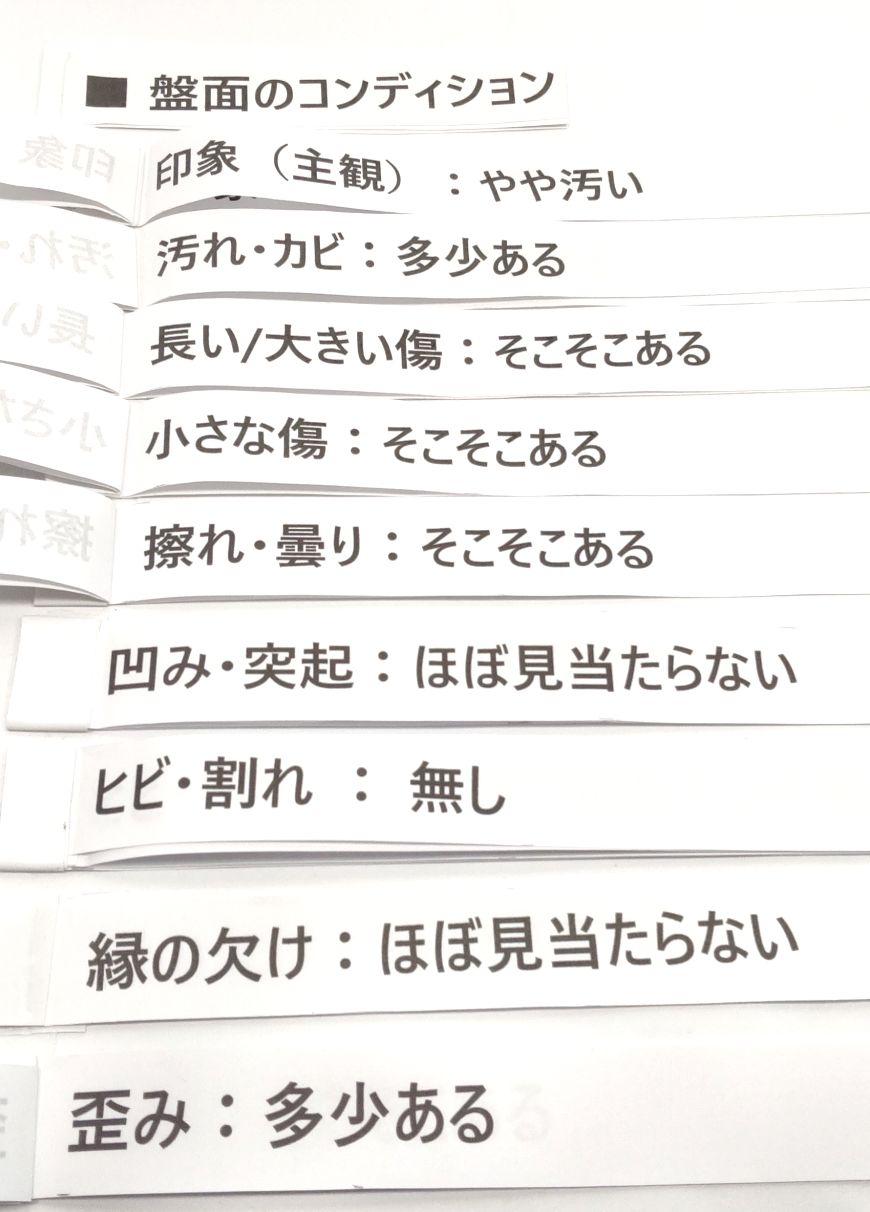 ■ 盤面のコンディション
印象（主観）：やや汚い
汚れ・カビ：多少ある
長い/大きい傷：そこそこある
小さな傷：そこそこある
擦れ・曇り：そこそこある
凹み・突起：ほぼ見当たらない
ヒビ・割れ：無し
縁の欠け：ほぼ見当たらない
歪み：多少ある